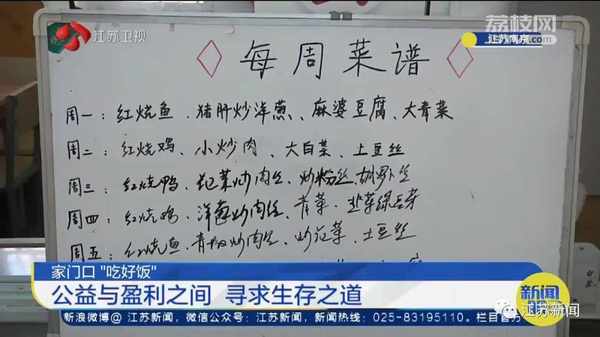 江苏卫视
荔枝网
江苏南京
每周菜谱
周一：红烧鱼、猪肝炒洋葱、麻婆豆腐、大青菜
周二：红烧鸡、小炒肉、大白菜、土豆丝
周三：红烧鸭、包菜炒肉丝、炒粉丝、胡萝卜丝
周四：红烧鸡、洋葱炒肉丝、青菜、韭菜绿豆芽
周五：红烧鱼、青椒炒肉丝、炒花菜、土豆丝
家门口 "吃好饭"
公益与盈利之间 寻求生存之道
新闻
新浪微博@ 江苏新闻，微信公众号：江苏新闻，新闻热线：025-83195110。栏目官方
江苏新闻